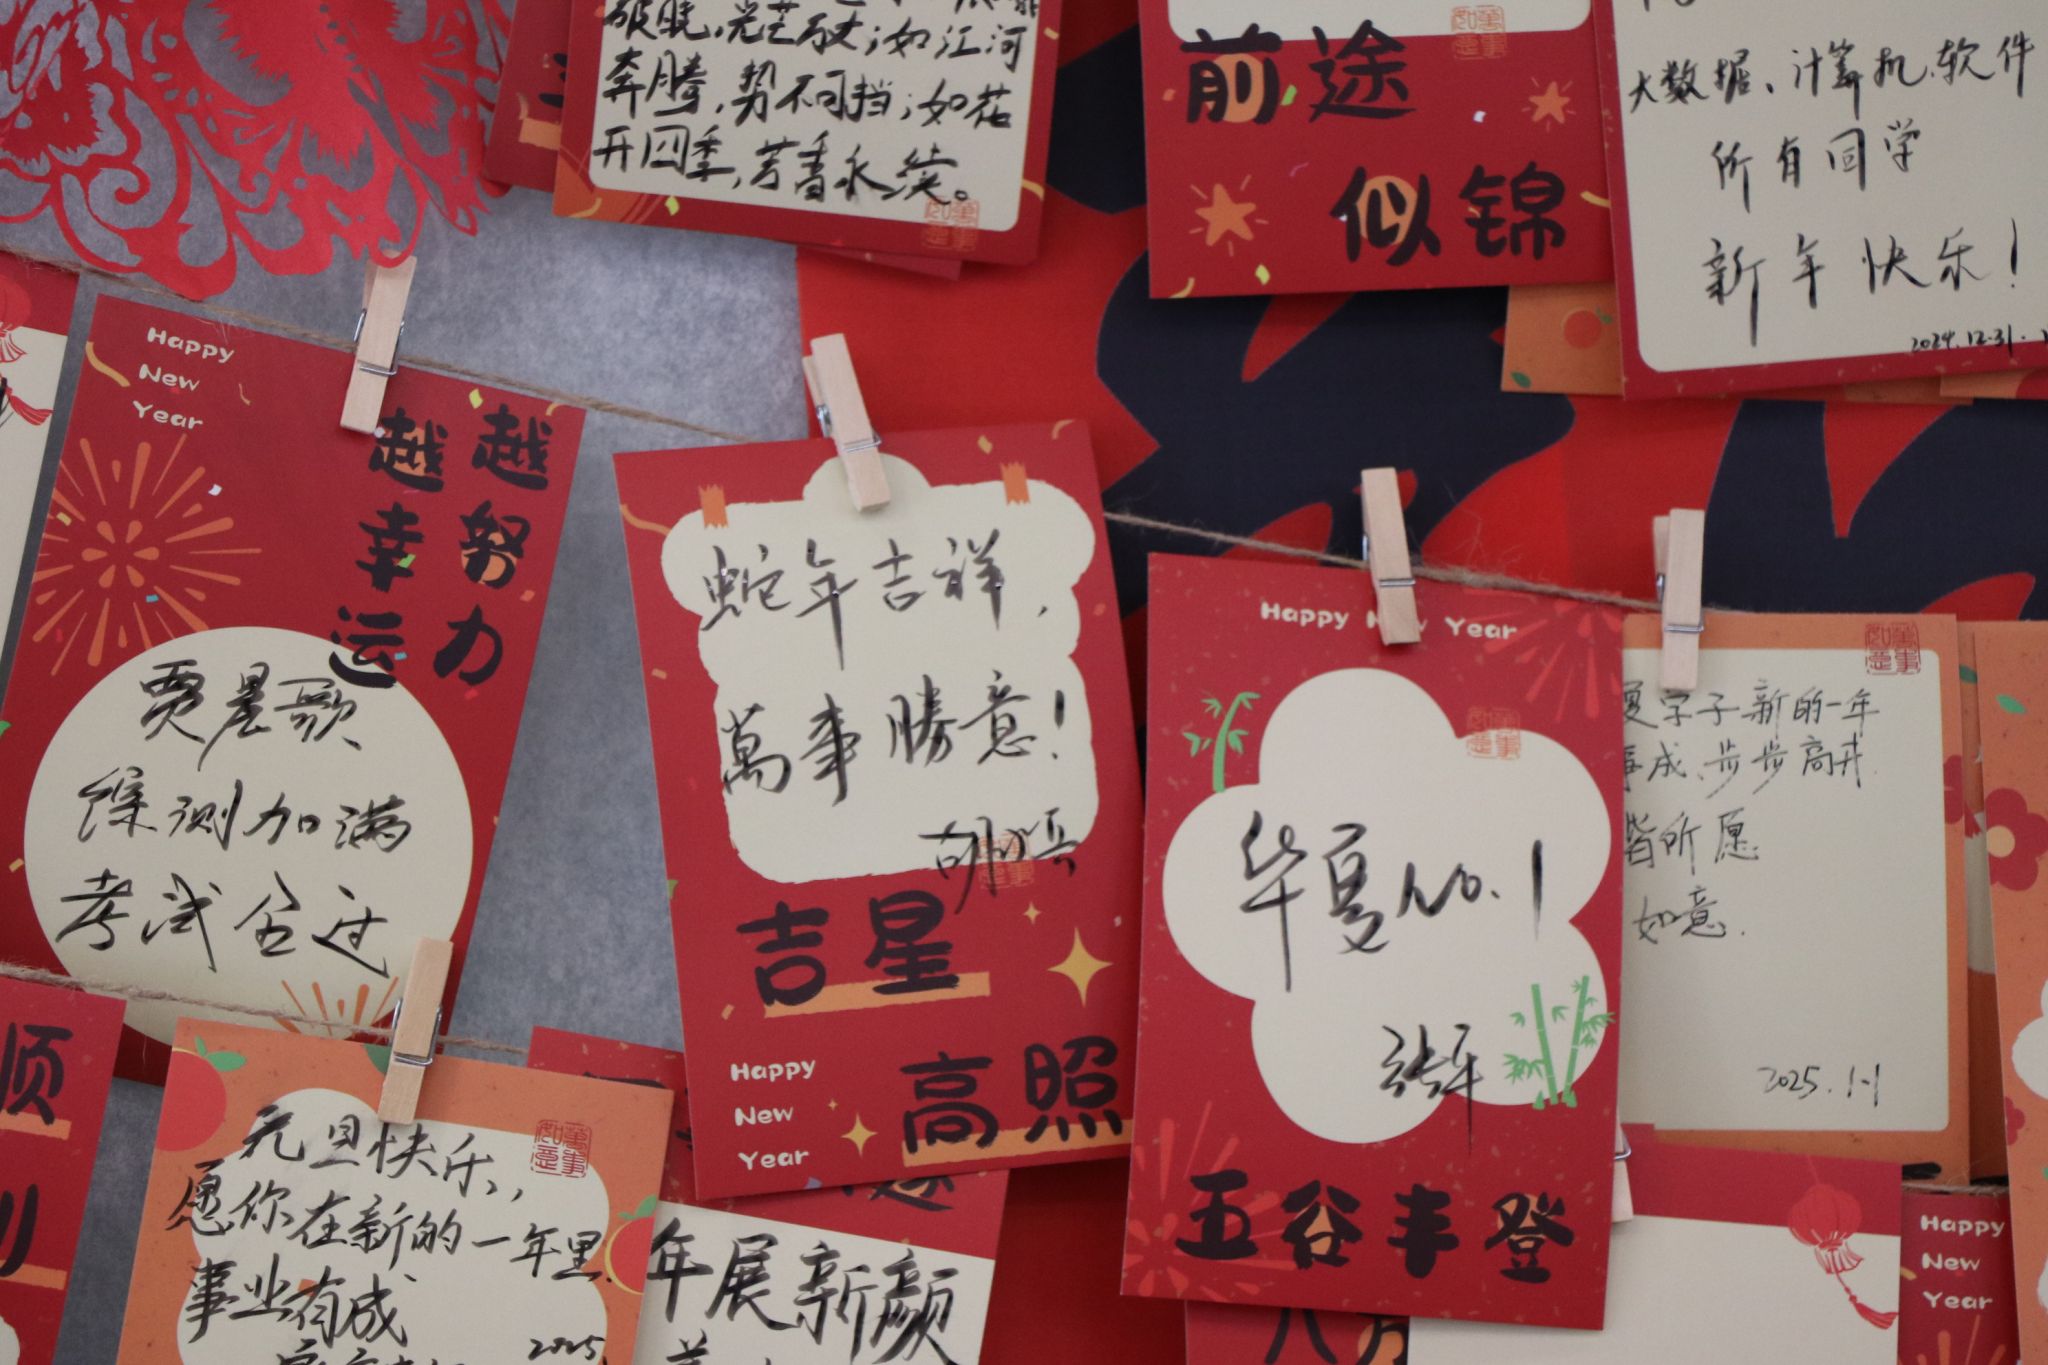 破晓,光芒万丈;如江河
奔腾,势不可挡;如花
开四季,芳香永续。
前途
似锦
大数据、计算机、软件
所有同学
新年快乐!
2024.12.31.
Happy
New
Year
越努力
越幸运
贾星歌
综测加满
考试全过
蛇年吉祥,
萬事勝意!
吉星
高照
Happy
New
Year
Happy New Year
华夏No.1
五谷丰登
学子新的一年
事成、步步高升.
皆所愿
如意.
2025.1.1
顺
元旦快乐,
愿你在新的一年里,
事业有成
2025,
年展新颜
Happy
New
Year